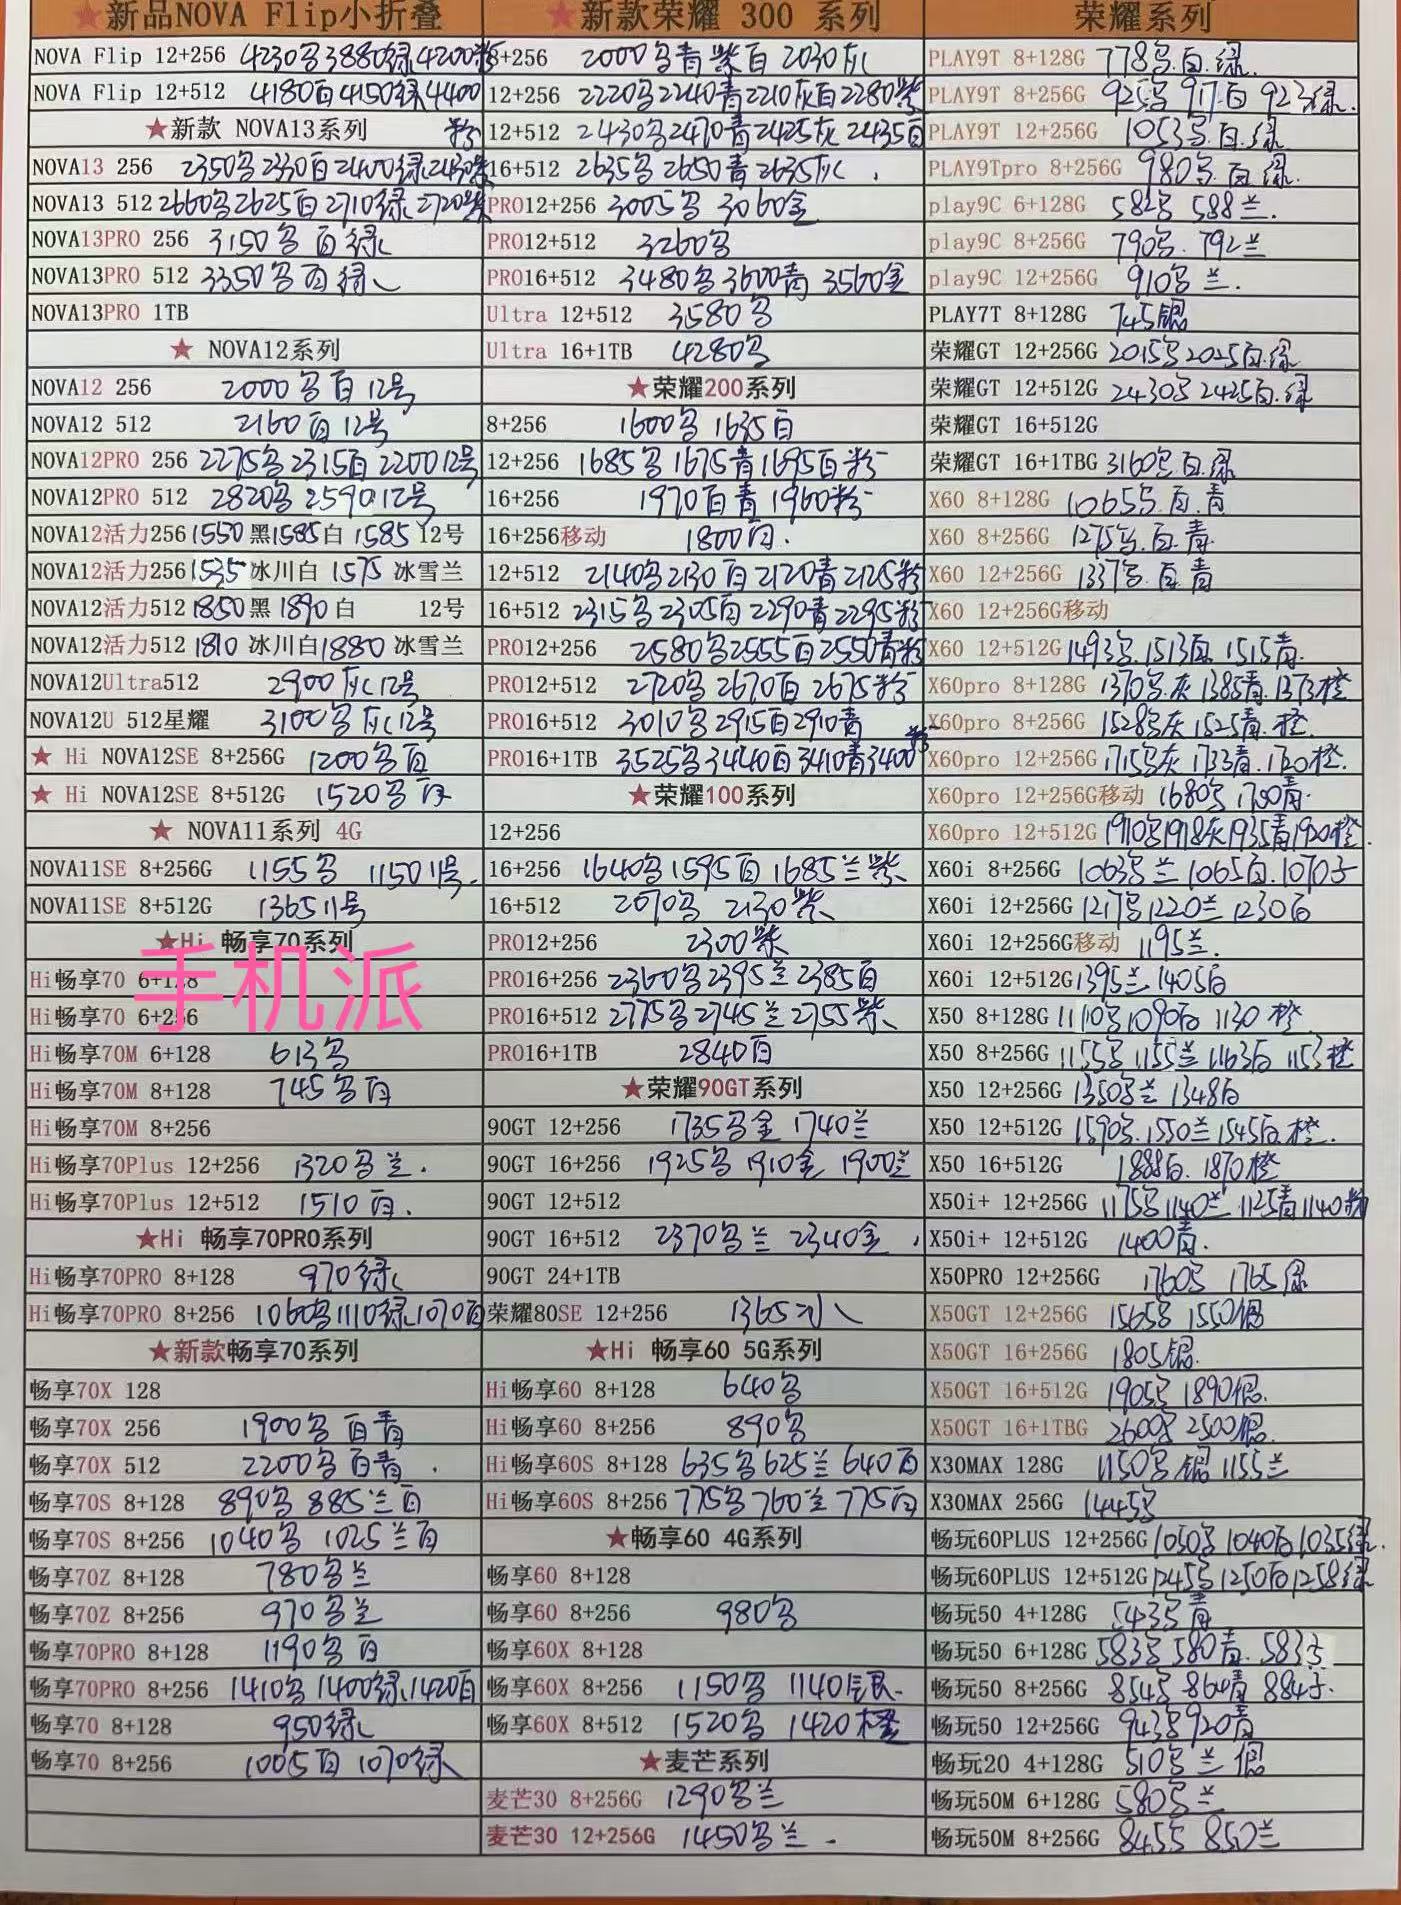 ★新品NOVA Flip小折叠
NOVA Flip 12+256 4230黑3880绿4200粉
NOVA Flip 12+512 4180白4150绿4400粉
★新款 NOVA13系列
NOVA13 256 2350黑2330白2400绿2430紫
NOVA13 512 2660黑2625白2710绿2720紫
NOVA13PRO 256 3150黑白绿
NOVA13PRO 512 3350黑白绿
NOVA13PRO 1TB
★ NOVA12系列
NOVA12 256 2000黑白12号
NOVA12 512 2160白12号
NOVA12PRO 256 2275黑2315白220012号
NOVA12PRO 512 2820黑259012号
NOVA12活力256 1550黑1585白 1585 12号
NOVA12活力256 1535冰川白 1575 冰雪兰
NOVA12活力512 1850黑 1890白 12号
NOVA12活力512 1810 冰川白1880 冰雪兰
NOVA12Ultra512 2900灰12号
NOVA12U 512星耀 3100黑灰12号
★ Hi NOVA12SE 8+256G 1200黑白
★ Hi NOVA12SE 8+512G 1520黑白
★ NOVA11系列 4G
NOVA11SE 8+256G 1155黑 1150 11号.
NOVA11SE 8+512G 1365 11号
★Hi 畅享70系列
Hi畅享70 6+128
手机派
Hi畅享70 6+256
Hi畅享70M 6+128 613黑
Hi畅享70M 8+128 745黑白
Hi畅享70M 8+256
Hi畅享70Plus 12+256 1320黑兰.
Hi畅享70Plus 12+512 1510白.
★Hi 畅享70PRO系列
Hi畅享70PRO 8+128 970绿
Hi畅享70PRO 8+256 1060黑1110绿1070白
★新款畅享70系列
畅享70X 128
畅享70X 256 1900黑白青
畅享70X 512 2200黑白青.
畅享70S 8+128 890黑 885兰白
畅享70S 8+256 1040黑 1025兰白
畅享70Z 8+128 780黑兰
畅享70Z 8+256 970黑兰
畅享70PRO 8+128 1190黑白
畅享70PRO 8+256 1410黑1400绿1420白
畅享70 8+128 950绿
畅享70 8+256 1005白 1070绿
★新款荣耀 300 系列
8+256 2000黑青紫白 2030灰
12+256 2220黑2240青2210灰白2280紫
12+512 2430黑2470青2425灰 2435白
16+512 2635黑2650青2635灰.
PRO12+256 3005黑 3060金
PRO12+512 3260黑
PRO16+512 3480黑3600青 3560金
Ultra 12+512 3580黑
Ultra 16+1TB 4280黑
★荣耀200系列
8+256 1600黑1635白
12+256 1685黑1675青1695白粉
16+256 1970白青 1960粉
16+256移动 1800白.
12+512 2140黑2130白2120青2125粉
16+512 2315黑2305白2290青2295粉
PRO12+256 2580黑2555白2550青粉
PRO12+512 2720黑2670白2675粉
PRO16+512 3010黑2915白2910青
PRO16+1TB 3525黑3440白3410青3400粉
★荣耀100系列
12+256
16+256 1640黑1595白1685兰紫
16+512 2070黑 2130紫
PRO12+256 2300紫
PRO16+256 2360黑2395兰2385白
PRO16+512 2775黑2745兰2755紫
PRO16+1TB 2840白
★荣耀90GT系列
90GT 12+256 1735黑金 1740兰
90GT 16+256 1925黑1910金1900兰
90GT 12+512
90GT 16+512 2370黑兰 2340金.
90GT 24+1TB
荣耀80SE 12+256 1365冰
★Hi 畅享60 5G系列
Hi畅享60 8+128 640黑
Hi畅享60 8+256 890黑
Hi畅享60S 8+128 635黑625兰640白
Hi畅享60S 8+256 775黑760兰775白
★畅享60 4G系列
畅享60 8+128
畅享60 8+256 980黑
畅享60X 8+128
畅享60X 8+256 1150黑 1140银.
畅享60X 8+512 1520黑 1420橙
★麦芒系列
麦芒30 8+256G 1290黑兰
麦芒30 12+256G 1450黑兰.
荣耀系列
PLAY9T 8+128G 778黑.白.绿.
PLAY9T 8+256G 925黑 917白 923绿.
PLAY9T 12+256G 1053黑.白.绿
PLAY9Tpro 8+256G 980黑 白.绿.
play9C 6+128G 582黑 588兰.
play9C 8+256G 790黑. 792兰
play9C 12+256G 910黑兰.
PLAY7T 8+128G 745银
荣耀GT 12+256G 2015黑2025白.绿
荣耀GT 12+512G 2430黑2425白.绿
荣耀GT 16+512G
荣耀GT 16+1TBG 3160黑.白.绿
X60 8+128G 1065黑.白.青
X60 8+256G 1275黑.白.青
X60 12+256G 1337黑.白青
X60 12+256G移动
X60 12+512G 1493黑.1513白.1515青.
X60pro 8+128G 1370黑.灰1385青.1373橙
X60pro 8+256G 1528黑灰1525青.橙
X60pro 12+256G 1715黑灰1733青.1720橙.
X60pro 12+256G移动 1680黑 1750青.
X60pro 12+512G 1910黑1918灰1935青1920橙.
X60i 8+256G 1063黑兰1065白.1070子
X60i 12+256G 1217黑1220兰1230白
X60i 12+256G移动 1195兰.
X60i 12+512G 1395兰1405白
X50 8+128G 1110黑1090白 1130 橙
X50 8+256G 1155黑.1155兰1163白 1153橙
X50 12+256G 1350黑兰 1348白
X50 12+512G 1590黑.1550兰1545白.橙.
X50 16+512G 1888白.1870橙
X50i+ 12+256G 1175黑1140兰.1125青1140粉
X50i+ 12+512G 1400青.
X50PRO 12+256G 1760黑 1765绿
X50GT 12+256G 1565黑 1550银
X50GT 16+256G 1805银.
X50GT 16+512G 1905黑 1890银.
X50GT 16+1TBG 2600黑2500银.
X30MAX 128G 1150黑 银1155兰
X30MAX 256G 1445黑
畅玩60PLUS 12+256G 1050黑 1040白1035绿.
畅玩60PLUS 12+512G 1245黑1250白1258绿
畅玩50 4+128G 543黑青
畅玩50 6+128G 583黑580青.583子
畅玩50 8+256G 854黑 864青 884子.
畅玩50 12+256G 943黑920青
畅玩20 4+128G 510黑兰 银
畅玩50M 6+128G 580黑兰
畅玩50M 8+256G 845黑 850兰